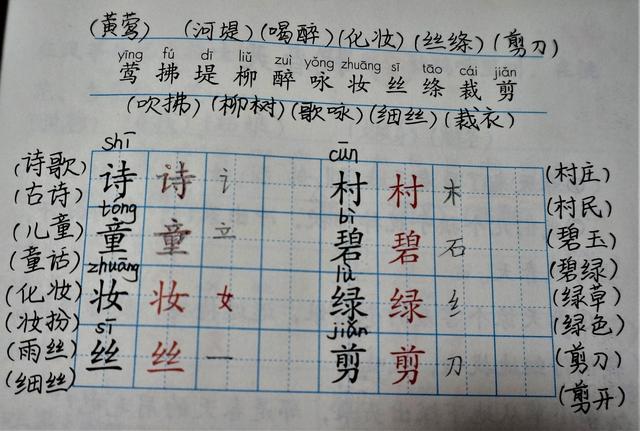 (黄莺) (河堤) (喝醉) (化妆) (丝绦) (剪刀)
yīng fú dī liǔ zuì yǒng zhuāng sī tāo cái jiǎn
莺 拂 堤 柳 醉 咏 妆 丝 绦 裁 剪
(吹拂) (柳树) (歌咏) (细丝) (裁衣)
shī cūn
(诗歌) 诗 诗 讠 村 村 木 (村庄)
(古诗) (村民)
tóng bì
(儿童) 童 童 立 碧 碧 石 (碧玉)
(童话) (碧绿)
zhuāng lǜ
(化妆) 妆 妆 女 绿 绿 纟 (绿草)
(妆扮) (绿色)
sī jiǎn
(雨丝) 丝 丝 一 剪 剪 刀 (剪刀)
(细丝) (剪开)